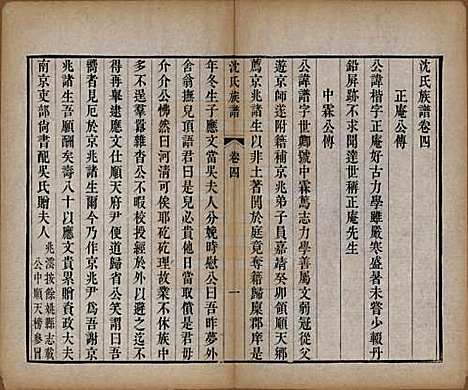 沈氏族譜卷四
正庵公傳
公諱楷字正庵好古力學雖嚴寒盛暑未嘗少輟丹
鉛屏跡不求聞達世稱正庵先生
中霖公傳
公諱譜字世卿號中霖篤志力學善屬文弱冠從父
遊京師遂附籍補京兆弟子員嘉靖癸卯領順天鄉
薦京兆諸生以非土著鬨於庭竟奪籍歸糜郡庠是
沈氏族譜
卷四
一
年冬生子應文當吳夫人分娩時慰公曰吾
舍翁撫兒頂語君曰是兒必貴他日
介介公怫然曰河清可俟耶矻矻理
多不給羣囂雜沓公不暇校授經而以避之迄不
得再舉逮應文仕順天府尹便道歸省公笑謂曰吾
嚮者見厄於京兆諸生爾今乃作京兆尹爲吾謝京
兆諸生吾願酬矣壽八十以應文貴累贈資政大夫
南京吏部尚書配吳氏贈夫人
兆濙按餘姚縣志載
公中順天榜參冒